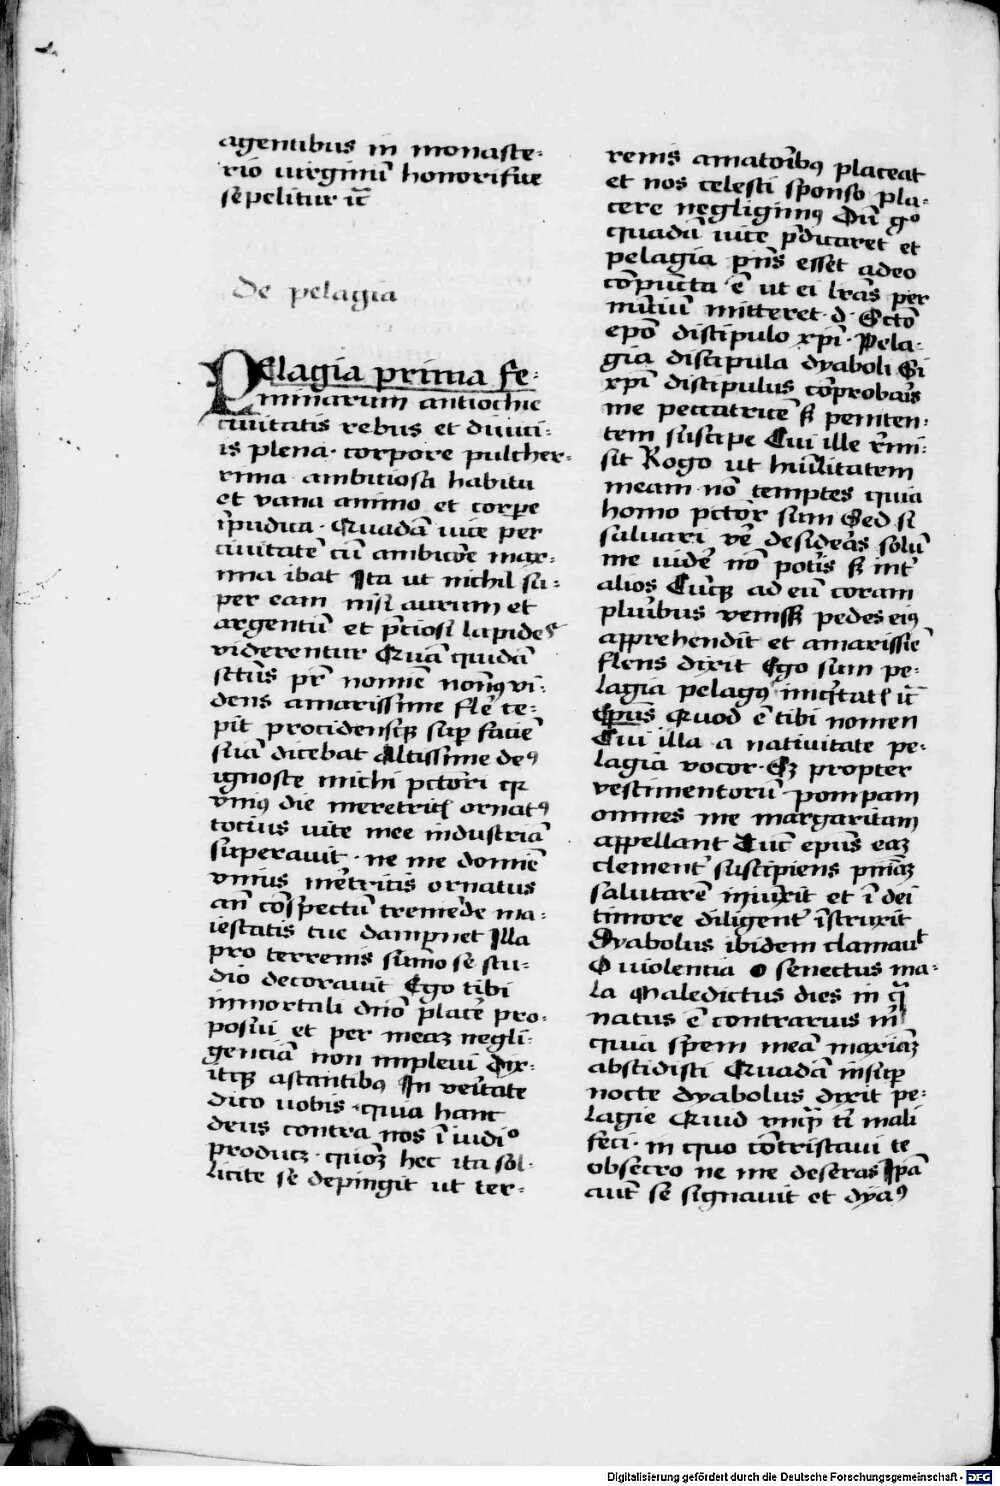 agentibus in monaste-
rio virginũ honorifice
sẽpelitur ⁊c̃
de pelagia
Pelagia prima fe-
minarum antiochie
civitatis rebus et divici-
is plena · corpore pulcher-
rima · ambiciosa habitu
et vana animo et corpe
ĩpudica · Quadã vice per
civitatẽ cũ ambicõe max-
ima ibat Ita ut nichil su-
per eam nisi aurum et
argentũ et p̃ciosi lapides
viderentur Quã quidã
sctũs pr̃ nomĩe nonn9 vi-
dens amarissime fle᷑ ce-
pit procidensq3 suꝑ faciẽ
suã dicebat Altissime de9
ignosce michi pctori qꝛ
vni9 die meretric̃ ornat9
tocius vite mee industriã
superavit · ne me domĩe
vnius me᷑tricis ornatus
an̄ cõspectũ tremẽde ma-
iestatis tue dampnet Illa
pro terrenis sũmo se stu-
dio decoravit Ego tibi
immortali dño place᷑ pro-
posui et per meaz negli-
genciã non implevi Dix-
itq3 astantibus In ve᷑itate
dico vobis · quia hanc
deus contra nos ĩ iudio
producz · quioz hec ita sol-
licite se depingit ut ter-
renis amatoribus placeat
et nos celesti sponso pla-
cere negligim9 Dũ go
quadã vice p̃dicaret et
pelagia p̃ns esset adeo
cõpũcta ẽ ut ei lr̃as per
nũciũ mitteret · d · Scto
epõ discipulo xpĩ · Pela-
gia discipula dyaboli Si
xpĩ discipulus cõprobar̃is
me peccatricẽ sꝫ peniten-
tem suscipe Cui ille r̃mi-
sit Rogo ut hũilitatem
meam · nõ temptes quia
homo pctõr sum Sed si
salvari ve᷑ desideras solũ
me vide᷑ nõ potis sꝫ int᷑
alios Cũq3 ad eũ coram
plu᷑ibus venissꝫ pedes ei9
apprehendit et amarissĩe
flens dixit Ego sum pe-
lagia pelag9 iniq̃tat᷑ ⁊c̃
Ep̃us Quod ẽ tibi nomen
Cui illa a nativitate pe-
lagia vocor · Sꝫ propter
vestimentorũ pompam
omnes me margaritam
appellant Tũc ep̃us eaz
clement᷑ suscipiens pniaz
salutarẽ iniuxit et ĩ dei
timore diligent᷑ ĩstruxit
Dyabolus ibidem clamavit
O violentia o senectus ma-
la Maledictus dies in q̃
natus ẽ contrarius m̃
quia spem meã maxiaz
abscidisti Quadã insuꝑ
nocte dyabolus dixit pe-
lagie Quid vmq̃ t̃ mali
feci · in quo cõtristavi te
obsecro ne me deseras Ip̃a
aut̃ se signavit et dya9
Digitalisierung gefördert durch die Deutsche Forschungsgemeinschaft - DFG